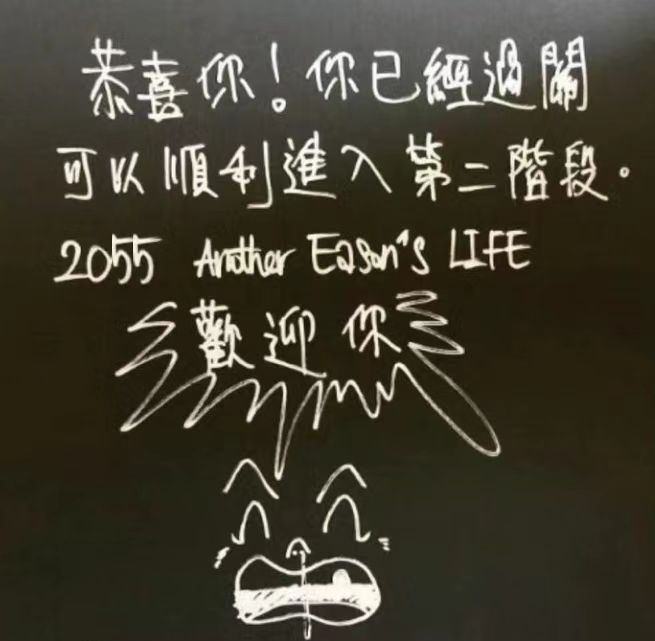 恭喜你！你已經過關
可以順利進入第二階段。
2055 Another Eason's LIFE
歡迎你